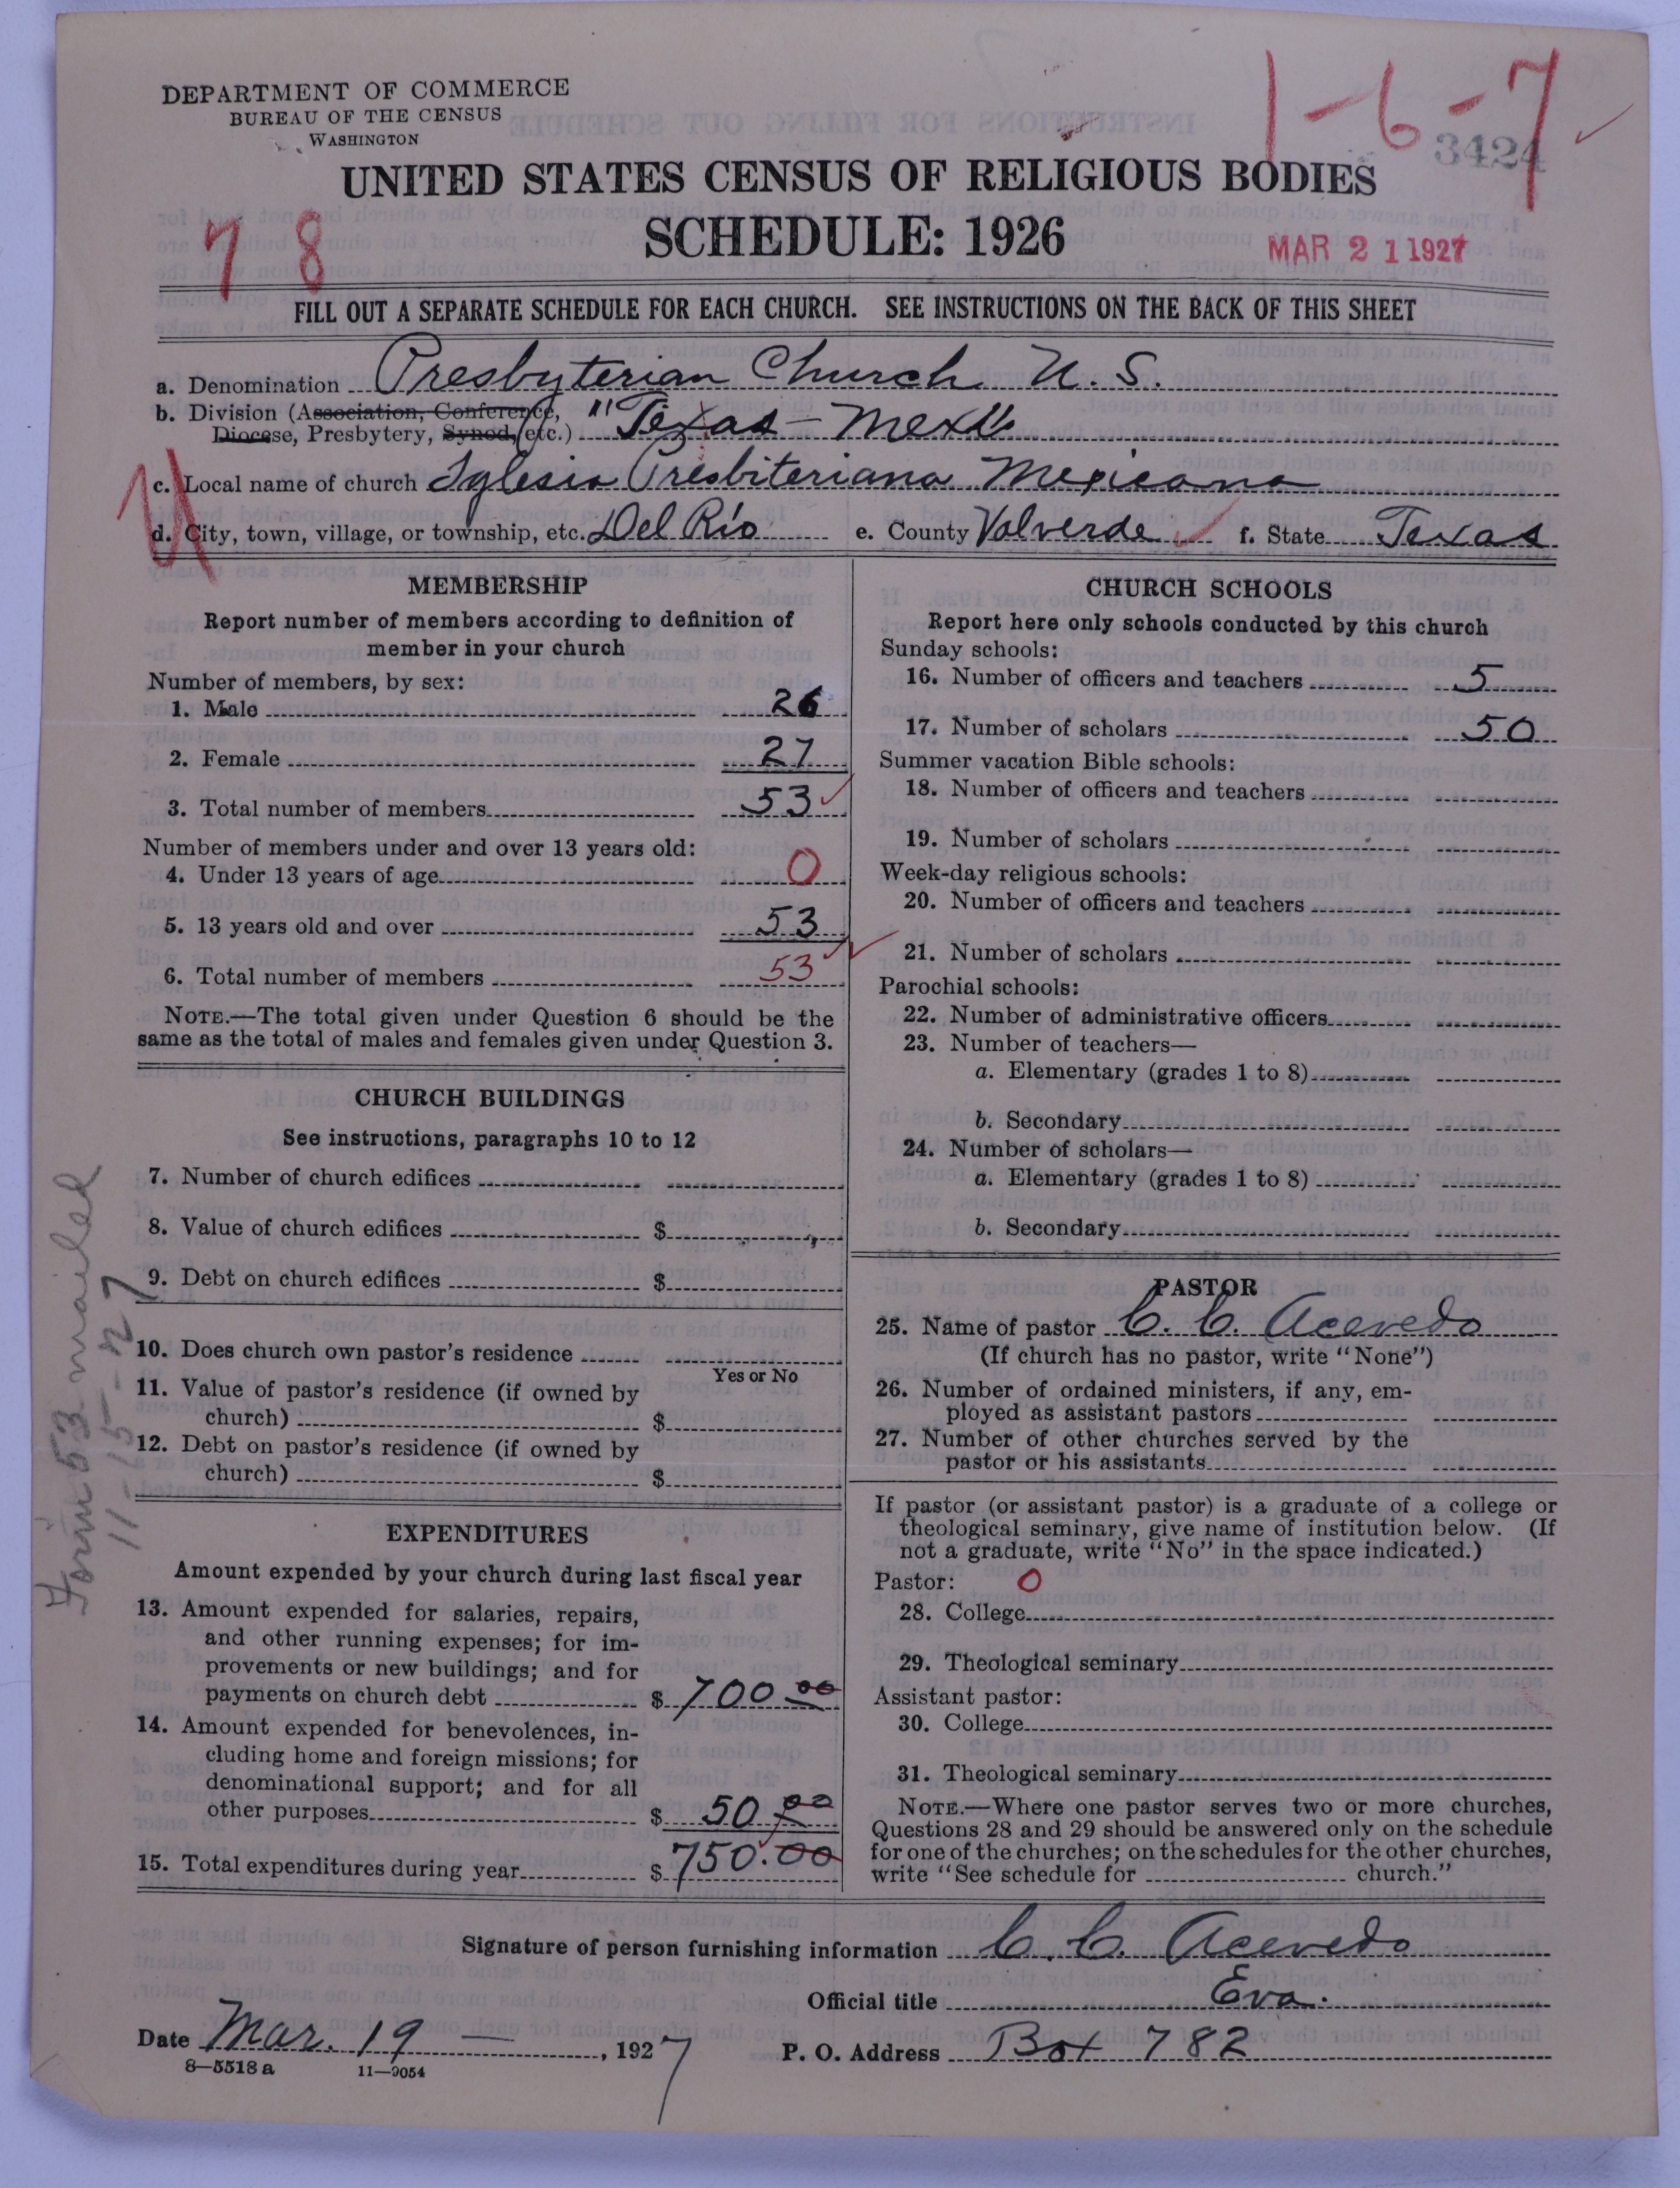 DEPARTMENT OF COMMERCE
BUREAU OF THE CENSUS
WASHINGTON
1-6-7
3424
UNITED STATES CENSUS OF RELIGIOUS BODIES
SCHEDULE: 1926
78
MAR 21 1927
FILL OUT A SEPARATE SCHEDULE FOR EACH CHURCH. SEE INSTRUCTIONS ON THE BACK OF THIS SHEET
a. Denomination Presbyterian Church U. S.
b. Division (Association, Conference,
Diocese, Presbytery, Synod, etc.) "Texas-Mex"
c. Local name of church Iglesia Presbiteriana Mexicana
d. City, town, village, or township, etc. Del Río e. County Valverde f. State Texas
MEMBERSHIP
Report number of members according to definition of
member in your church
Number of members, by sex:
1. Male 26
2. Female 27
3. Total number of members 53
Number of members under and over 13 years old:
4. Under 13 years of age 0
5. 13 years old and over 53
6. Total number of members 53
NOTE.—The total given under Question 6 should be the
same as the total of males and females given under Question 3.
CHURCH BUILDINGS
See instructions, paragraphs 10 to 12
7. Number of church edifices
8. Value of church edifices $
9. Debt on church edifices $
10. Does church own pastor's residence
Yes or No
11. Value of pastor's residence (if owned by
church) $
12. Debt on pastor's residence (if owned by
church) $
EXPENDITURES
Amount expended by your church during last fiscal year
13. Amount expended for salaries, repairs,
and other running expenses; for im-
provements or new buildings; and for
payments on church debt $ 700.00
14. Amount expended for benevolences, in-
cluding home and foreign missions; for
denominational support; and for all
other purposes $ 50.00
15. Total expenditures during year $ 750.00
Form 53 mailed
11-15-27
CHURCH SCHOOLS
Report here only schools conducted by this church
Sunday schools:
16. Number of officers and teachers 5
17. Number of scholars 50
Summer vacation Bible schools:
18. Number of officers and teachers
19. Number of scholars
Week-day religious schools:
20. Number of officers and teachers
21. Number of scholars
Parochial schools:
22. Number of administrative officers
23. Number of teachers—
a. Elementary (grades 1 to 8)
b. Secondary
24. Number of scholars—
a. Elementary (grades 1 to 8)
b. Secondary
PASTOR
25. Name of pastor C. C. Acevedo
(If church has no pastor, write "None")
26. Number of ordained ministers, if any, em-
ployed as assistant pastors
27. Number of other churches served by the
pastor or his assistants
If pastor (or assistant pastor) is a graduate of a college or
theological seminary, give name of institution below. (If
not a graduate, write "No" in the space indicated.)
Pastor: 0
28. College
29. Theological seminary
Assistant pastor:
30. College
31. Theological seminary
NOTE.—Where one pastor serves two or more churches,
Questions 28 and 29 should be answered only on the schedule
for one of the churches; on the schedules for the other churches,
write "See schedule for church."
Signature of person furnishing information C. C. Acevedo
Official title Eva.
Date Mar. 19 —, 1927 P. O. Address Box 782
8—5518 a 11—9054